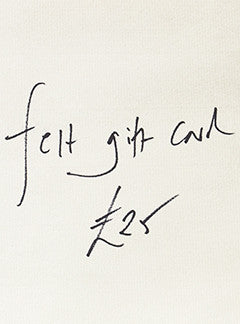 felt gift card
£25